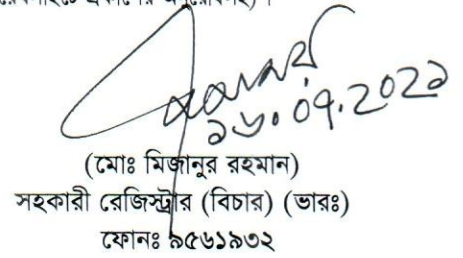 (মোঃ মিজানুর রহমান)
সহকারী রেজিস্ট্রার (বিচার) (ভারঃ)
ফোনঃ ৯৫৬১৯৩২